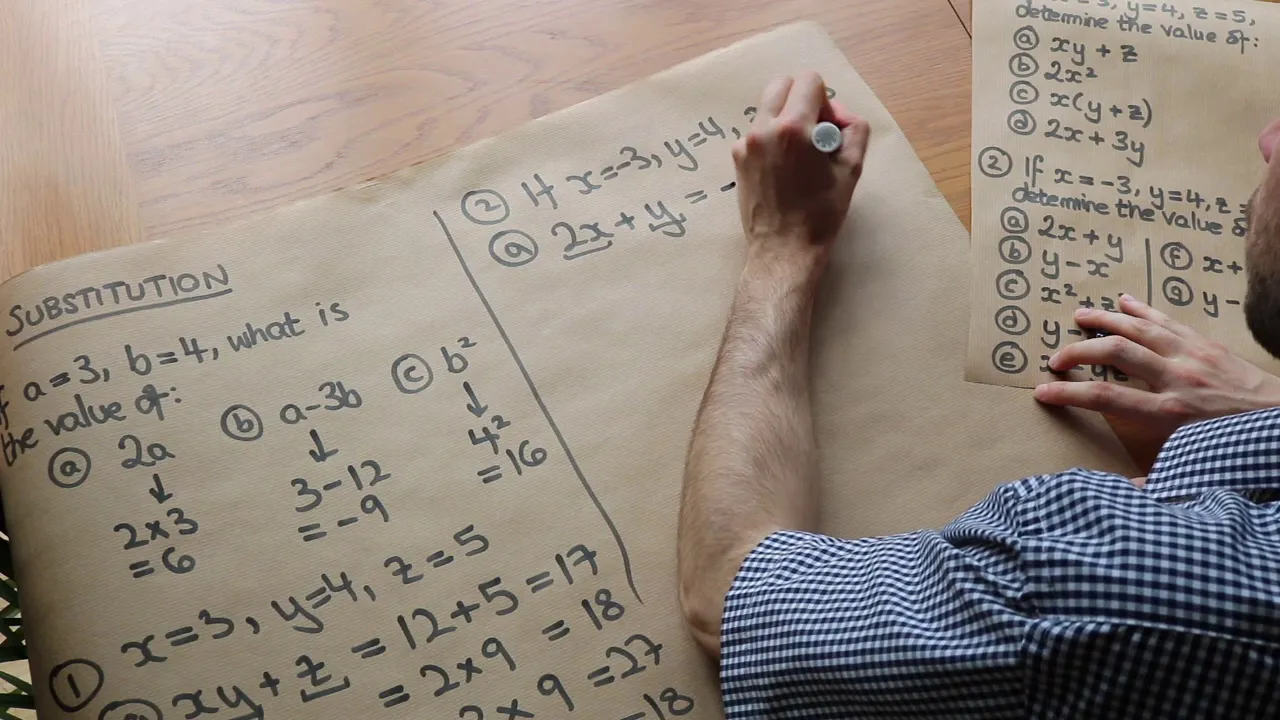 SUBSTITUTION
If a=3, b=4, what is
the value of:
(a) 2a (b) a-3b (c) b²
↓ ↓ ↓
2×3 3-12 4²
=6 =-9 =16
(1) x=3, y=4, z=5
xy+z = 12+5 =17
=2×9 =18
×9 =27
=18
(2) If x=-3, y=4,
(a) 2x+y = -
y=4, z=5,
determine the value of:
(a) xy + z
(b) 2x²
(c) x(y+z)
(d) 2x + 3y
(2) If x = -3, y=4, z =
determine the value of
(a) 2x + y
(b) y - x
(c) x² + z
(d) y -
(e)
(f) x +
(g) y -